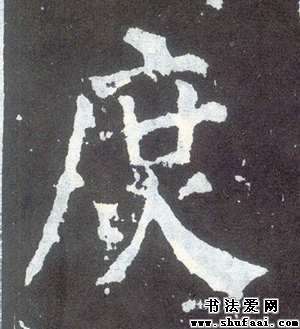 度
书法爱网
www.shufaai.com